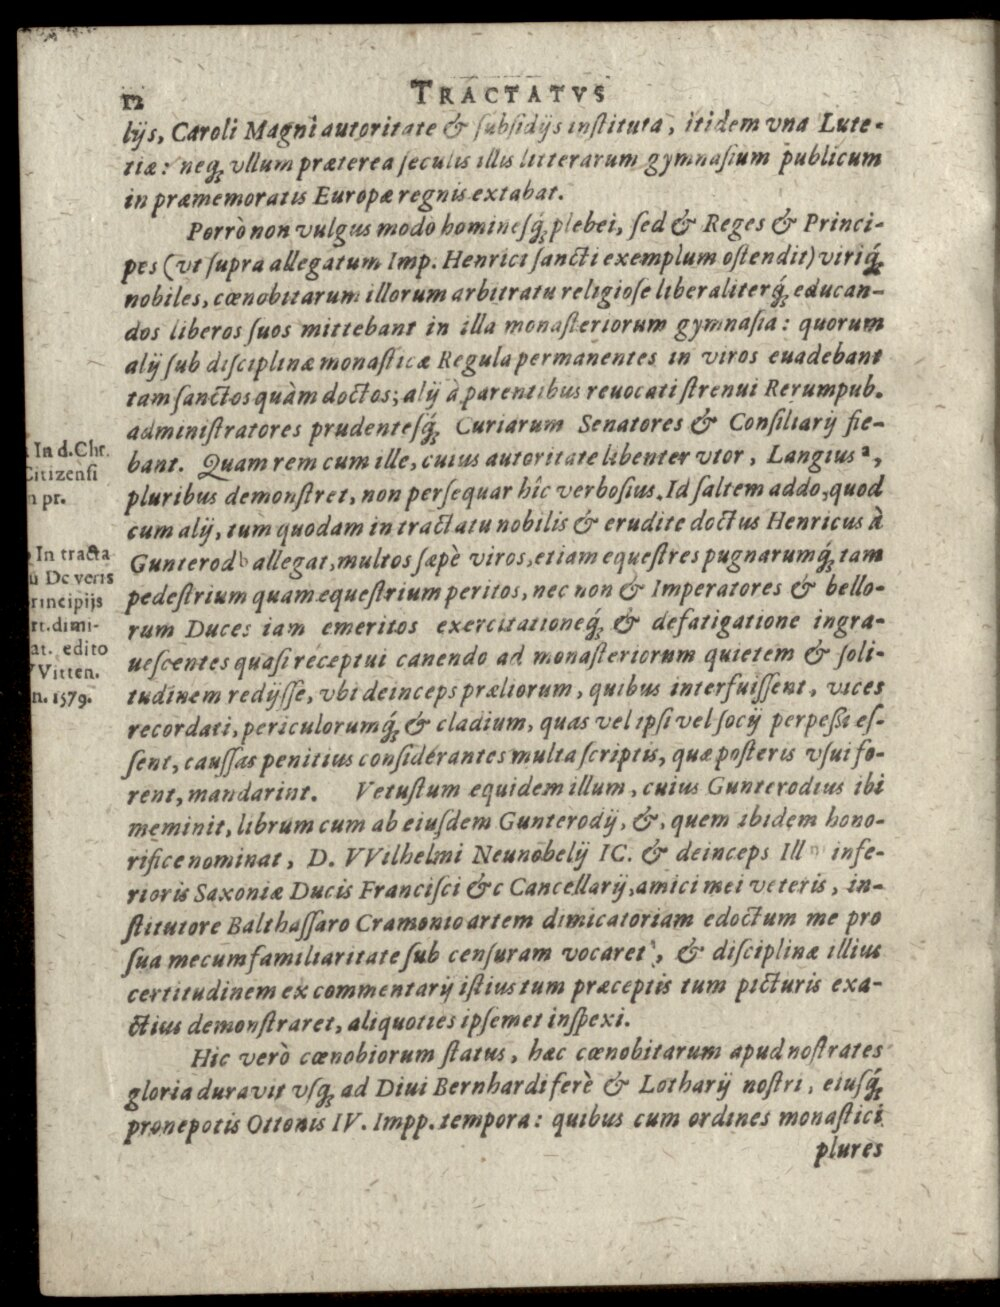 12 TRACTATVS
lijs, Caroli Magni autoritate & ſubſidijs inſtituta, itidem vna Lute-
tiæ: neqꝫ vllum præterea ſeculis illis litterarum gymnaſium publicum
in præmemoratis Europæ regnis extabat.
Porrò non vulgus modò homineſqꝫ́ plebei, ſed & Reges & Princi-
pes (vt ſupra allegatum Imp. Henrici ſancti exemplum oſtendit) viriqꝫ́
nobiles, cœnobitarum illorum arbitratu religioſe liberaliterqꝫ́ educan-
dos liberos ſuos mittebant in illa monaſteriorum gymnaſia: quorum
alij ſub diſciplinæ monaſticæ Regula permanentes in viros euadebant
tam ſanctos quàm doctos; alij à parentibus reuocati ſtrenui Rerumpub.
adminiſtratores prudenteſqꝫ́ Curiarum Senatores & Conſiliarij fie-
bant. Quam rem cum ille, cuius autoritate libenter vtor, Langius ᵃ,
pluribus demonſtret, non perſequar hîc verboſius. Id ſaltem addo, quod
cum alij, tum quodam in tractatu nobilis & erudite doctus Henricus à
Gunterod ᵇ allegat, multos ſæpè viros, etiam equeſtres pugnarumqꝫ́ tam
pedeſtrium quam æqueſtrium peritos, nec non & Imperatores & bello-
rum Duces iam emeritos exercitationeqꝫ́ & defatigatione ingra-
ueſcentes quaſi receptui canendo ad monaſteriorum quietem & ſoli-
tudinem redijſſe, vbi deinceps præliorum, quibus interfuiſſent, vices
recordati, periculorumqꝫ́ & cladium, quas vel ipſi vel ſocij perpeßi eſ-
ſent, cauſſas penitius conſiderantes multa ſcriptis, quæ poſteris vſui fo-
rent, mandarint. Vetuſtum equidem illum, cuius Gunterodius ibi
meminit, librum cum ab eiuſdem Gunterodij, &, quem ibidem hono-
rifice nominat, D. VVilhelmi Neunobelij IC. & deinceps Ill infe-
rioris Saxoniæ Ducis Franciſci &c Cancellarij, amici mei veteris, in-
ſtitutore Balthaſſaro Cramonio artem dimicatoriam edoctum me pro
ſua mecum familiaritate ſub cenſuram vocaret, & diſciplinæ illius
certitudinem ex commentarij iſtius tum præceptis tum picturis exa-
ctius demonſtraret, aliquoties ipſemet inſpexi.
Hic verò cœnobiorum ſtatus, hæc cœnobitarum apud noſtrates
gloria durauit vſqꝫ ad Diui Bernhardi ferè & Lotharij noſtri, eiuſqꝫ́
pronepotis Ottonis IV. Impp. tempora: quibus cum ordines monaſtici
plures
In d. Chr.
Citizenſi
n pr.
In tracta
ũ De veris
rincipijs
rt. dimi-
at. edito
VVitten.
n. 1579.